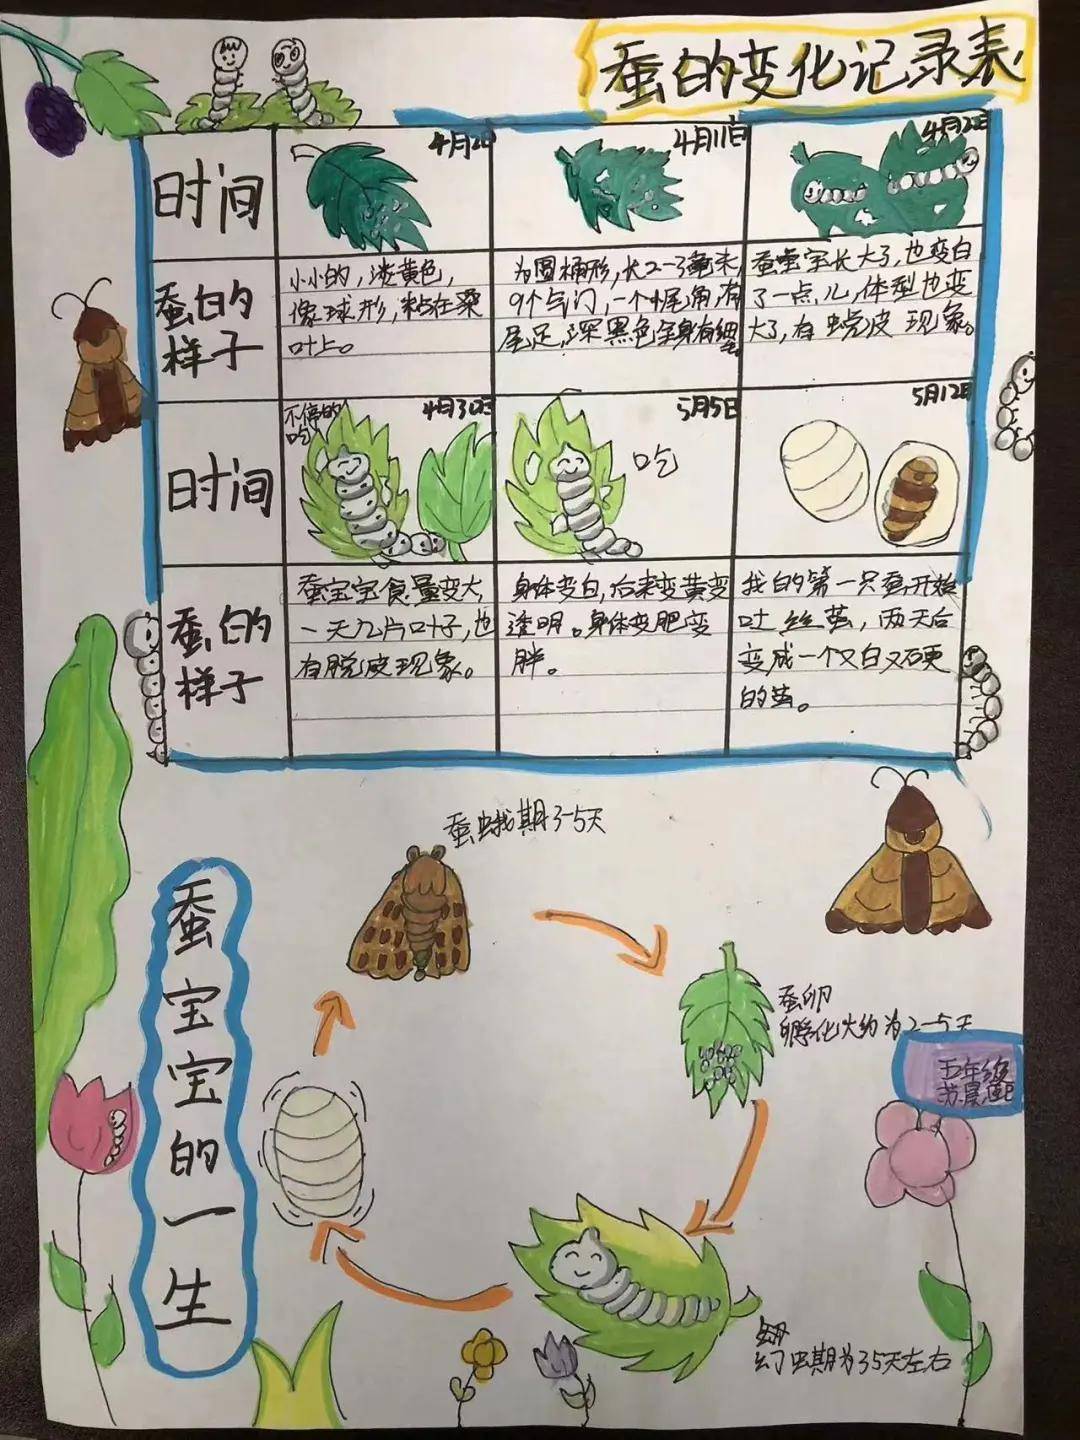 蚕的变化记录表
时间
4月2日
4月11日
4月2日
蚕的
样子
小小的，淡黄色，
像球形，粘在桑
叶上。
为圆桶形，长2-3毫米，
9个气门，一个尾角，有
尾足，深黑色全身有细
蚕宝宝长大了，也变白
了一点儿，体型也变
大了，有蜕皮现象。
时间
不停的
吃
4月30日
5月5日
吃
5月12日
蚕的
样子
蚕宝宝食量变大，
一天几片叶子，也
有脱皮现象。
身体变白，后来变黄变
透明。身体变肥变
胖。
我的第一只蚕开始
吐丝茧，两天后
变成一个又白又硬
的茧。
蚕蛾期3-5天
蚕宝宝的一生
蚕卵
孵化大约为2-5天
五年级
幼虫期为35天左右